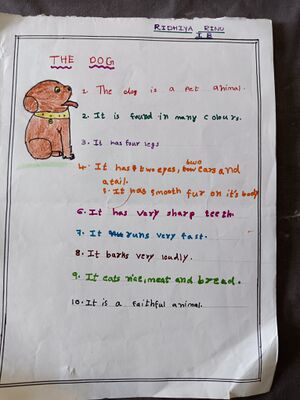 RIDHIYA RINU
I B
THE DOG
1 The dog is a pet animal.
2. It is found in many colours.
3. It has four legs
4. It has two eyes, two ears and
a tail.
5. It has smooth fur on it's body
6. It has very sharp teeth.
7. It runs very fast.
8. It barks very loudly.
9. It eats rice, meat and bread.
10. It is a faithful animal.